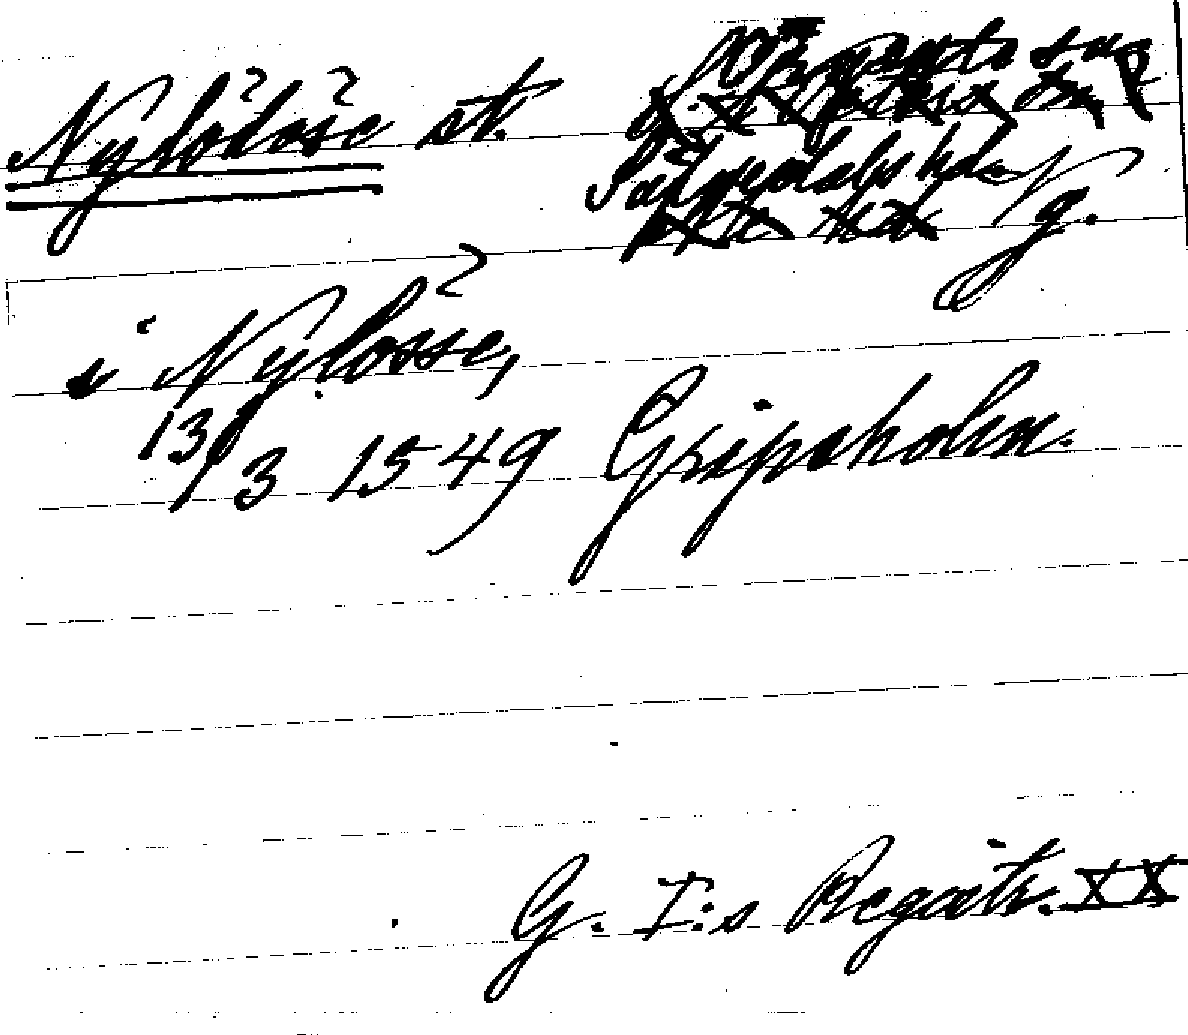 Nylödöse st.
Sävedals hd. Vg.
i Nylösse,
13/3 1549 Gripsholm.
G. I:s Registr. XX